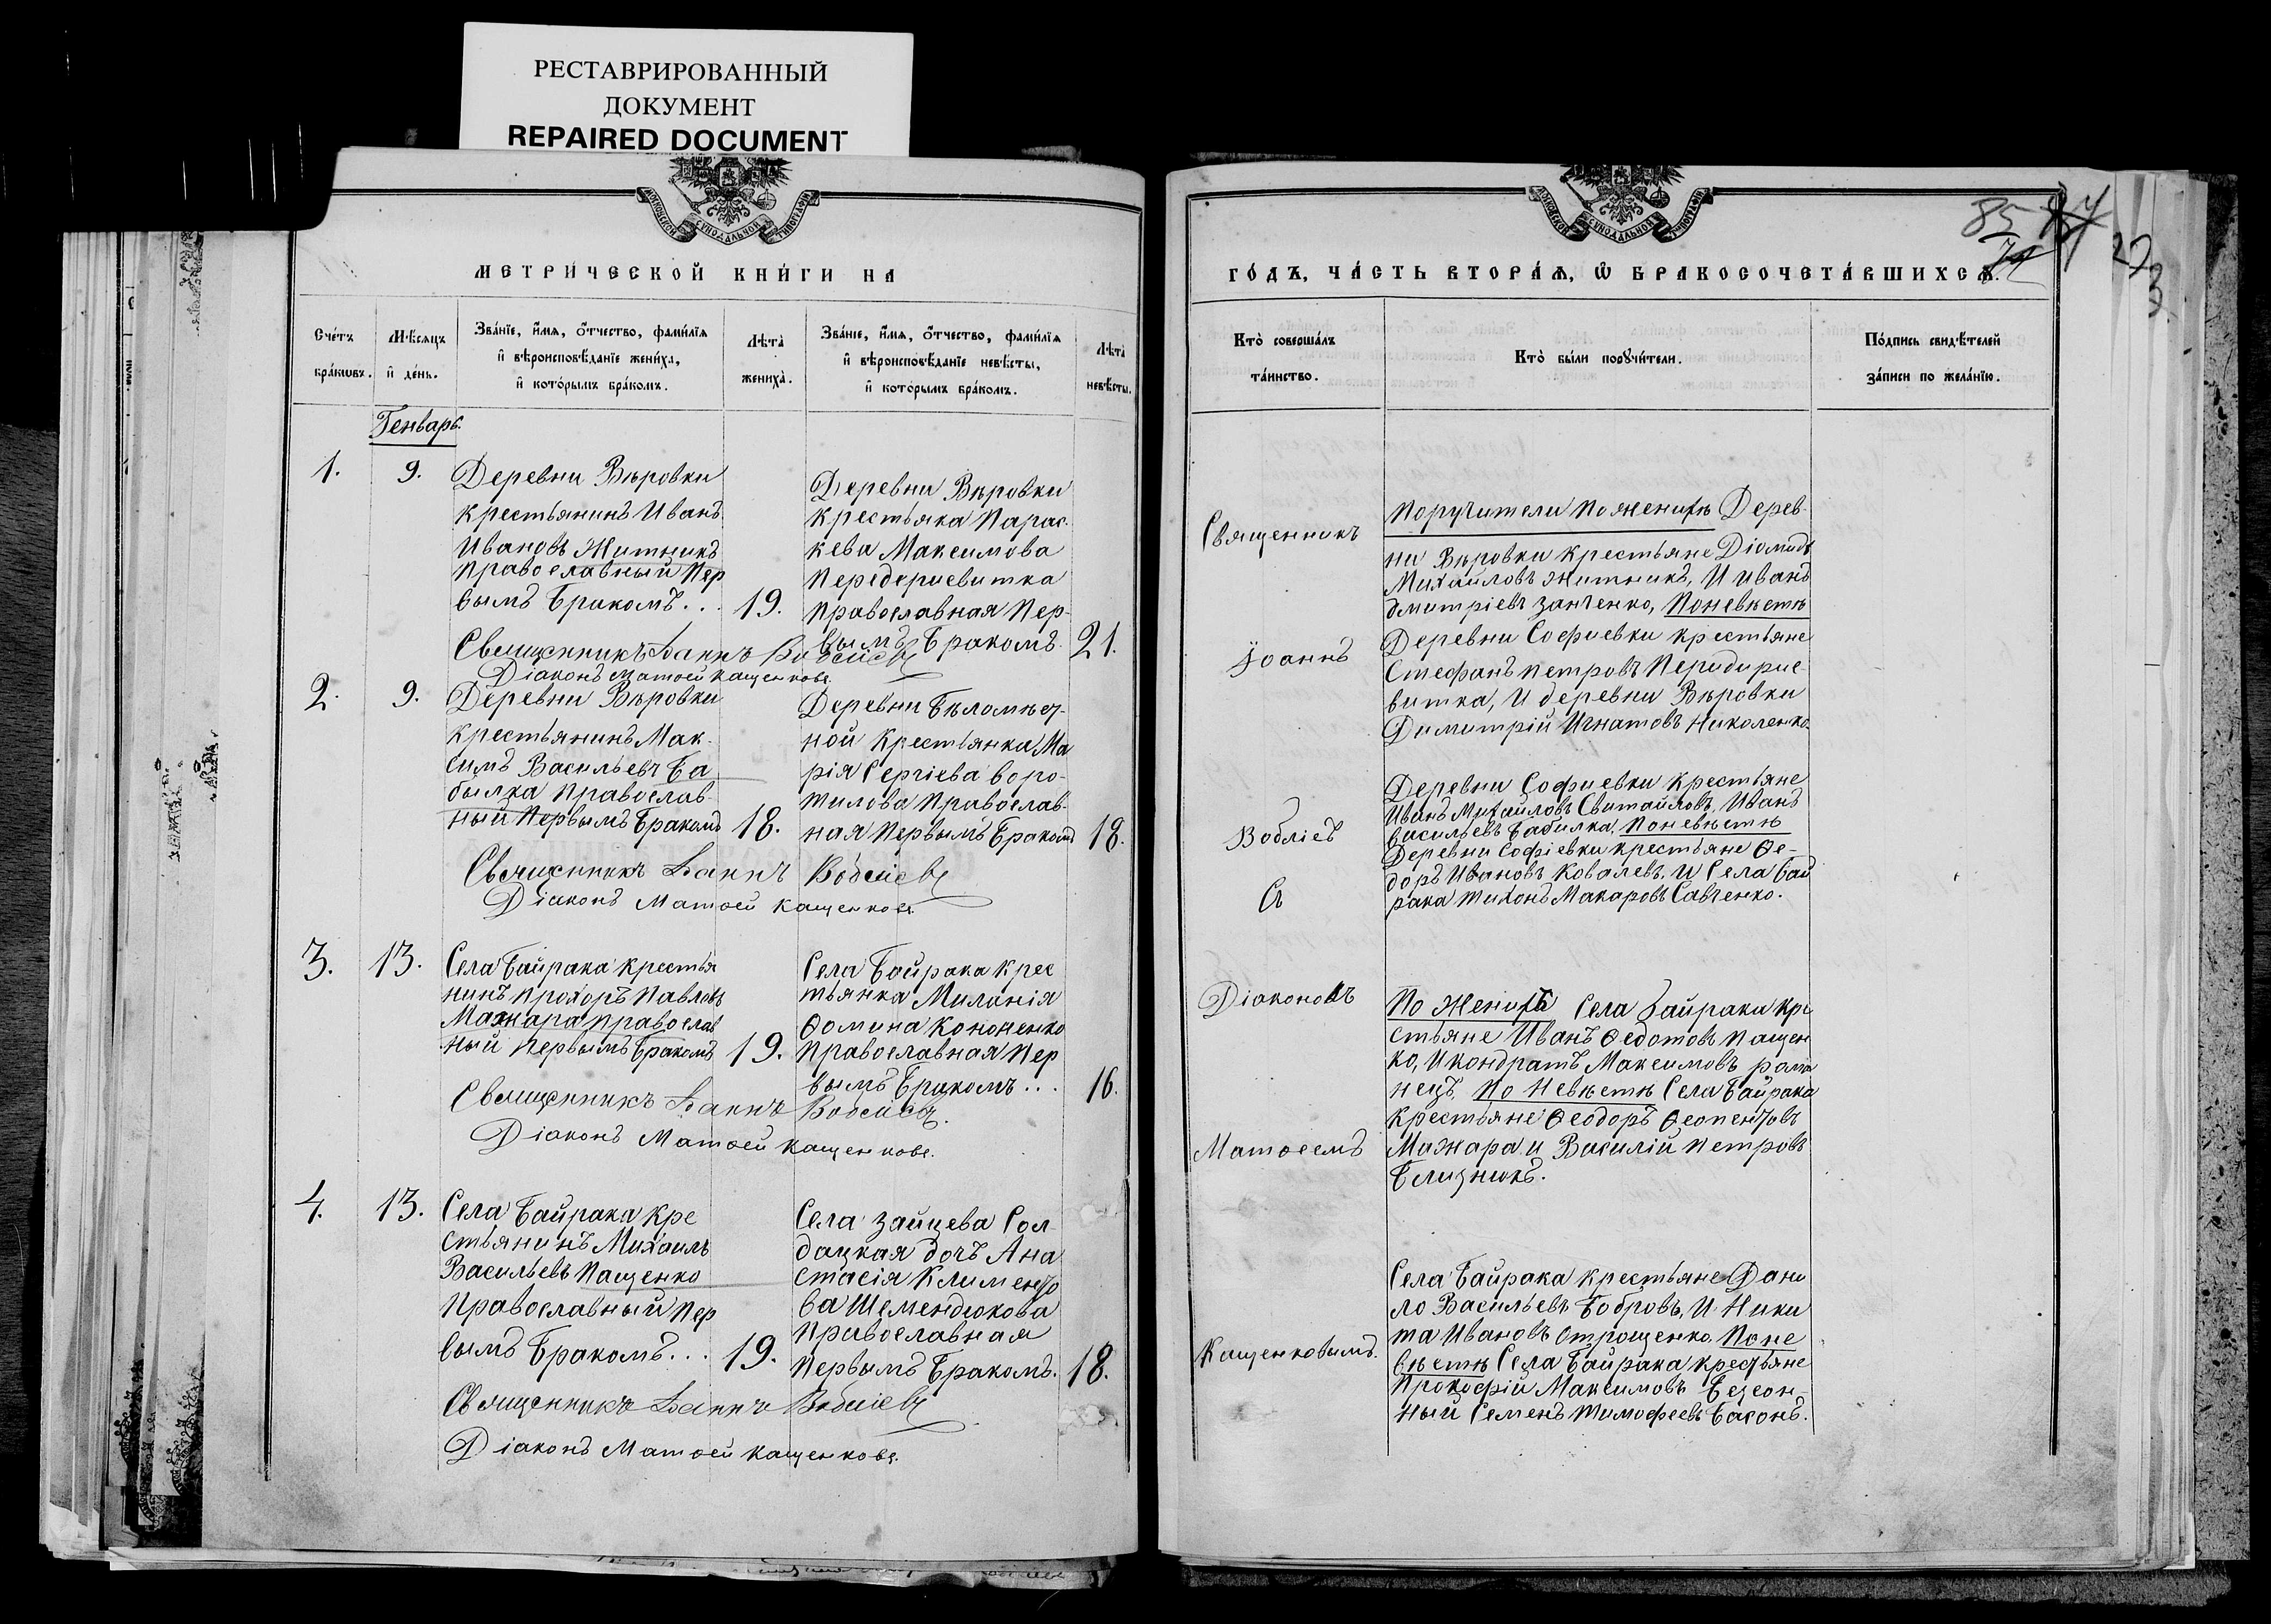 РЕСТАВРИРОВАННЫЙ
ДОКУМЕНТ
REPAIRED DOCUMENT
МОСКОВСКОЙ СѴНОДАЛЬНОЙ ТИПОГРАФІИ
МЕТРИ́ЧЕСКОЙ КНИ́ГИ НА
Сче́тъ
бра́кѡвъ.
Мѣ́сяцъ
и҆ де́нь.
Зва́нїе, и҆́мѧ, ѻ҆́тчество, фами́лїѧ
и҆ вѣроисповѣ́данїе жениха̀,
и҆ кото́рымъ бра́комъ.
Лѣта̀
жениха̀.
Зва́нїе, и҆́мѧ, ѻ҆́тчество, фами́лїѧ
и҆ вѣроисповѣ́данїе невѣ́сты,
и҆ кото́рымъ бра́комъ.
Лѣта̀
невѣ́сты.
Генварь.
1.
9.
Деревни Вѣровки
крестьянинъ Иванъ
Ивановъ Житникъ
православный Пер
вымъ Бракомъ...
19.
Деревни Вѣровки
крестьяка Парас-
кева Максимова
Передериевитка
православная Пер-
вымъ Бракомъ.
21.
Священникъ Іоаннъ Воблiевъ
Діаконъ Матѳей Кащенковъ.
2.
9.
Деревни Вѣровки
крестьянинъ Мак-
симъ Васильевъ Ба
былка православ-
ный Первымъ Бракомъ
18.
Деревни Бѣломѣст-
ной Крестьянка Ма
рія Сергіева Воро-
тилова Православ-
ная Первымъ Бракомъ
18.
Священникъ Іоаннъ Воблiевъ
Діаконъ Матѳей Кащенковъ.
3.
13.
Села Байрака Крестья
нинъ Прохоръ Павловъ
Мажара православ
ный Первымъ Бракомъ
19.
Села Байрака Крес
тьянка Миланія
Ѳомина Кононенко
православная Пер
вымъ Бракомъ...
16.
Священникъ Іоаннъ Воблiевъ.
Діаконъ Матѳей Кащенковъ.
4.
13.
Села Байрака Кре
стьянинъ Михаилъ
Васильевъ Пащенко
Православный Пер
вымъ Бракомъ...
19.
Села Зайцева Сол
дацкая дочъ Ана
стасія Клименто
ва Шемендюкова
православная
Первымъ Бракомъ.
18.
Священникъ Іоаннъ Воблiевъ
Діаконъ Матѳей Кащенковъ.
МОСКОВСКОЙ СѴНОДАЛЬНОЙ ТИПОГРАФІИ
85
273
ГО́ДЪ, ЧА́СТЬ ВТОРА́Ѧ, Ѽ БРАКОСОЧЕТА́ВШИХСѦ.
Кто̀ соверша́лъ
та́инство.
Кто̀ бы́ли порꙋчи́тели.
По́дпись свидѣ́телей
за́писи по жела́нїю.
Священникъ
Іоаннъ
Вобліевъ
Съ
Діакономъ
Матѳеемъ
Кащенковымъ.
Поручители Пожениху Дерев-
ни Вѣровки крестьяне Діомидъ
Михаиловъ Житникъ, И Иванъ
Дмитріевъ Занченко, Поневѣстѣ
Деревни Софиевки крестьяне
Стефанъ Петровъ Перидирие-
витка, И деревни Вѣровки
Димитрій Игнатовъ Николенко.
Деревни Софиевки Крестьяне
Иванъ Михайловъ Свитайловъ, Иванъ
Васильевъ Бабилка, Поневѣстѣ
Деревни Софіевки крестьяне Ѳе-
доръ Ивановъ Ковалевъ, И Села Бай
рака Тихонъ Макаровъ Савченко.
По Женихѣ Села Байрака Кре
стьяне Иванъ Ѳедотовъ Пащен
ко, И Кондратъ Максимовъ Рома
нецъ, По Невѣстѣ Села Байрака
Крестьяне Ѳеодоръ Ѳеопентовъ
Мажара и Василій Петровъ
Близнюкъ.
Села Байрака крестьяне Дани
ло Васильевъ Бобровъ, И Ники
та Ивановъ Отрощенко, Поне
вѣстѣ Села Байрака крестьяне
Прокофій Максимовъ Безсон-
ный Семенъ Тимофеевъ Басонъ.